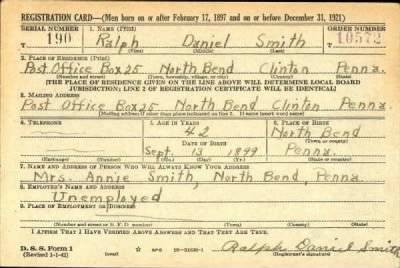 REGISTRATION CARD—(Men born on or after February 17, 1897 and on or before December 31, 1921)
SERIAL NUMBER 1. NAME (Print) ORDER NUMBER
190 Ralph Daniel Smith 10572
(First) (Middle) (Last)
2. PLACE OF RESIDENCE (Print)
Post Office Box 25 North Bend Clinton Penna.
(Number and street) (Town, township, village, or city) (County) (State)
[THE PLACE OF RESIDENCE GIVEN ON THE LINE ABOVE WILL DETERMINE LOCAL BOARD
JURISDICTION; LINE 2 OF REGISTRATION CERTIFICATE WILL BE IDENTICAL]
3. MAILING ADDRESS
Post Office Box 25 North Bend Clinton Penna.
[Mailing address if other than place indicated on line 2. If same insert word same]
4. TELEPHONE 5. AGE IN YEARS 6. PLACE OF BIRTH
42 North Bend
DATE OF BIRTH (Town or county)
Sept. 13 1899 Penna.
(Exchange) (Number) (Mo.) (Day) (Yr.) (State or country)
7. NAME AND ADDRESS OF PERSON WHO WILL ALWAYS KNOW YOUR ADDRESS
Mrs. Annie Smith, North Bend, Penna.
8. EMPLOYER'S NAME AND ADDRESS
Unemployed
9. PLACE OF EMPLOYMENT OR BUSINESS
(Number and street or R. F. D. number) (Town) (County) (State)
I AFFIRM THAT I HAVE VERIFIED ABOVE ANSWERS AND THAT THEY ARE TRUE.
D. S. S. Form 1
(Revised 1-1-42) Ralph Daniel Smith
(Registrant's signature)